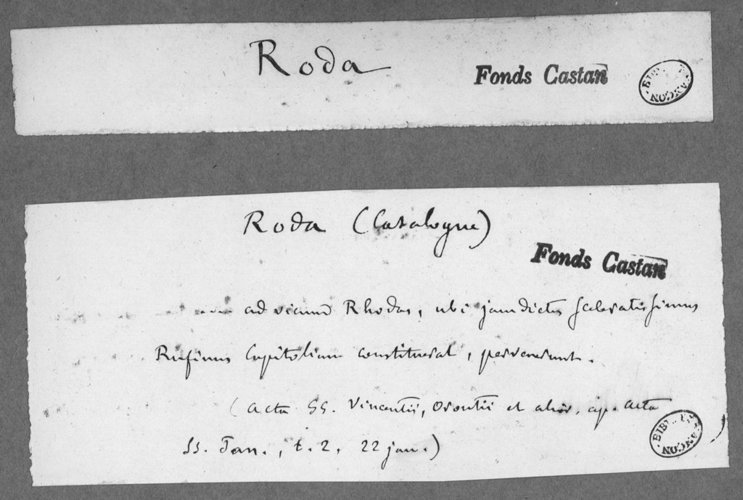 Roda
Fonds Castan
BIBL. BESANÇON
Roda (Catalogne)
Fonds Castan
..... ad vicum Rhodas, ubi jamdictus sceleratissimus
Rufinus Capitolium constituerat, pervenerunt.
(Acta SS. Vincentii, Orontii et alior. ap. Acta
SS. Jan., t. 2, 22 jan.)